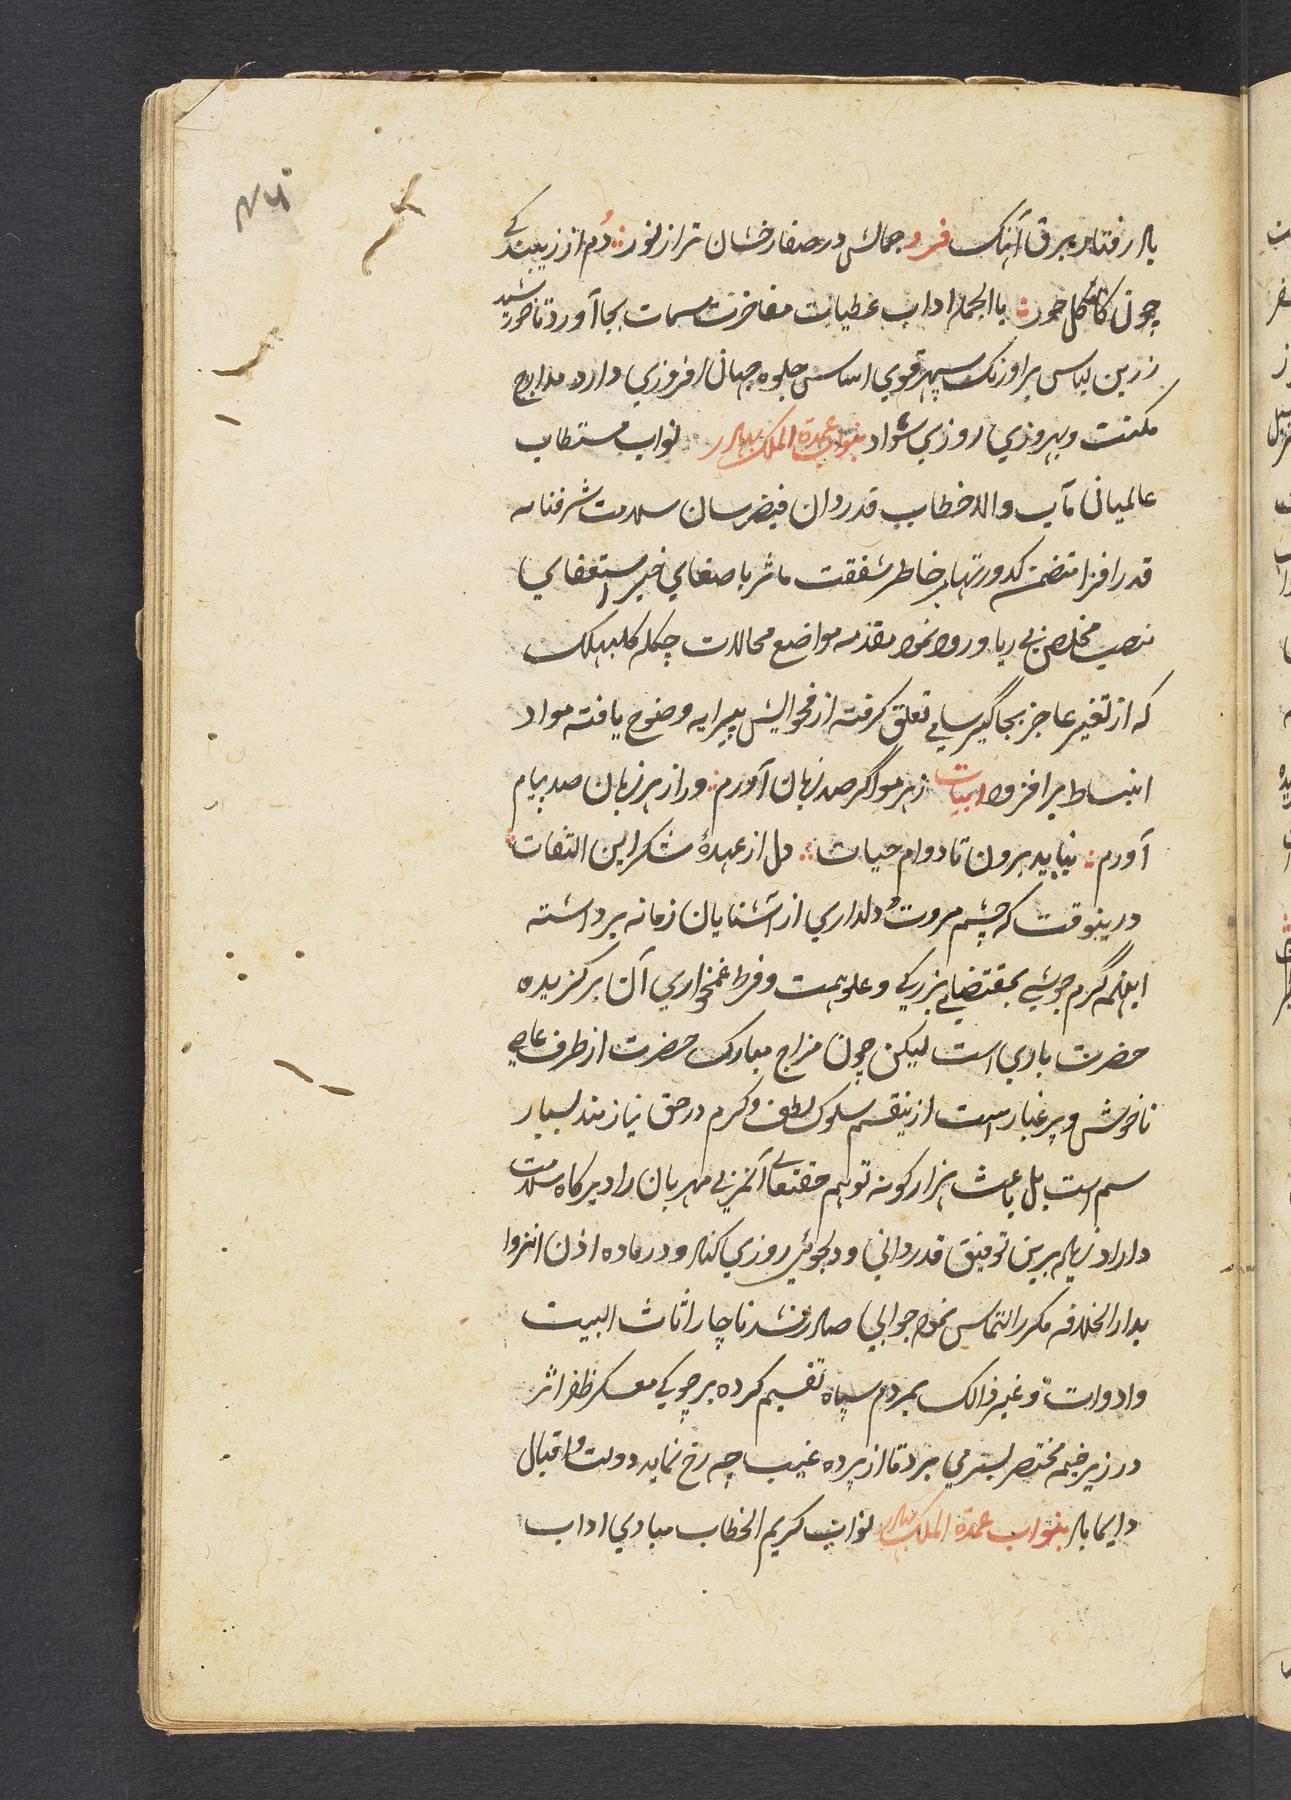 باد رفتار برق آهنگ فرد جمالش در صفا رخشان تر از نور دم از زیبندکی
چون کاکل حور با الجمله اداب عطیات مفاخرت سمات بجا آورد تا خورشید
زرین لباس بر اورنک سپهر قوی اساس جلوه جهان افروزی دارد مدارج
مکنت و بهروزی روزی شواد بنواب عمدة الملک بهادر نواب مستطاب
عالمیان مآب والا خطاب قدردان فیضرسان سلامت شرفنامه
قدر افزا متضمن کدورتها بر خاطر شفقت ماثر باصغای خبر استعفای
منصب مخلص بی ریا و روا نمود مقدمه مواضع محالات چکله
که از تغیر عاجز بجاگیر سامی تعلق کرفته از فحوایش پیرایه وضوح یافته مواد
انبساط برافزود ابیات ز هر مو اگر صد زبان آورم ور از هر زبان صد پیام
آورم نیاید برون تا دوام حیات دل از عهدهٔ شکر این التفات
درینوقت که چشم مروت و دلداری از آشنایان زمانه برداشته
اینهمه گرم جوشی بمقتضای بزرکی و علو همت و فرط غمخواری آن برکزیده
حضرت باری است لیکن چون مزاج مبارک حضرت از طرف عاصی
ناخوش و پر غبار است ازینقسم سلوک لطف و کرم در حق نیازمند بسیار
سم است بل باعث هزار کونه توهم حقتعالی آنمربی مهربان را دیرکاه سلامت
داراد زیاده برین توفیق قدردانی و دلجوئی روزی کناد و در ماده اذن انزوا
بدار الخلافه مکرر التماس نمود جوابی صادر نشد ناچار اثاث البیت
و ادوات و غیر ذالک بمردم سپاه تقسیم کرده بر چوکی معسکر ظفر اثر
در زیر خیمه مختصر بسر می برد تا از پرده غیب چه رخ نماید دولت و اقبال
دایما باد بنواب عمدة الملک بهادر نواب کریم الخطاب مبادی اداب